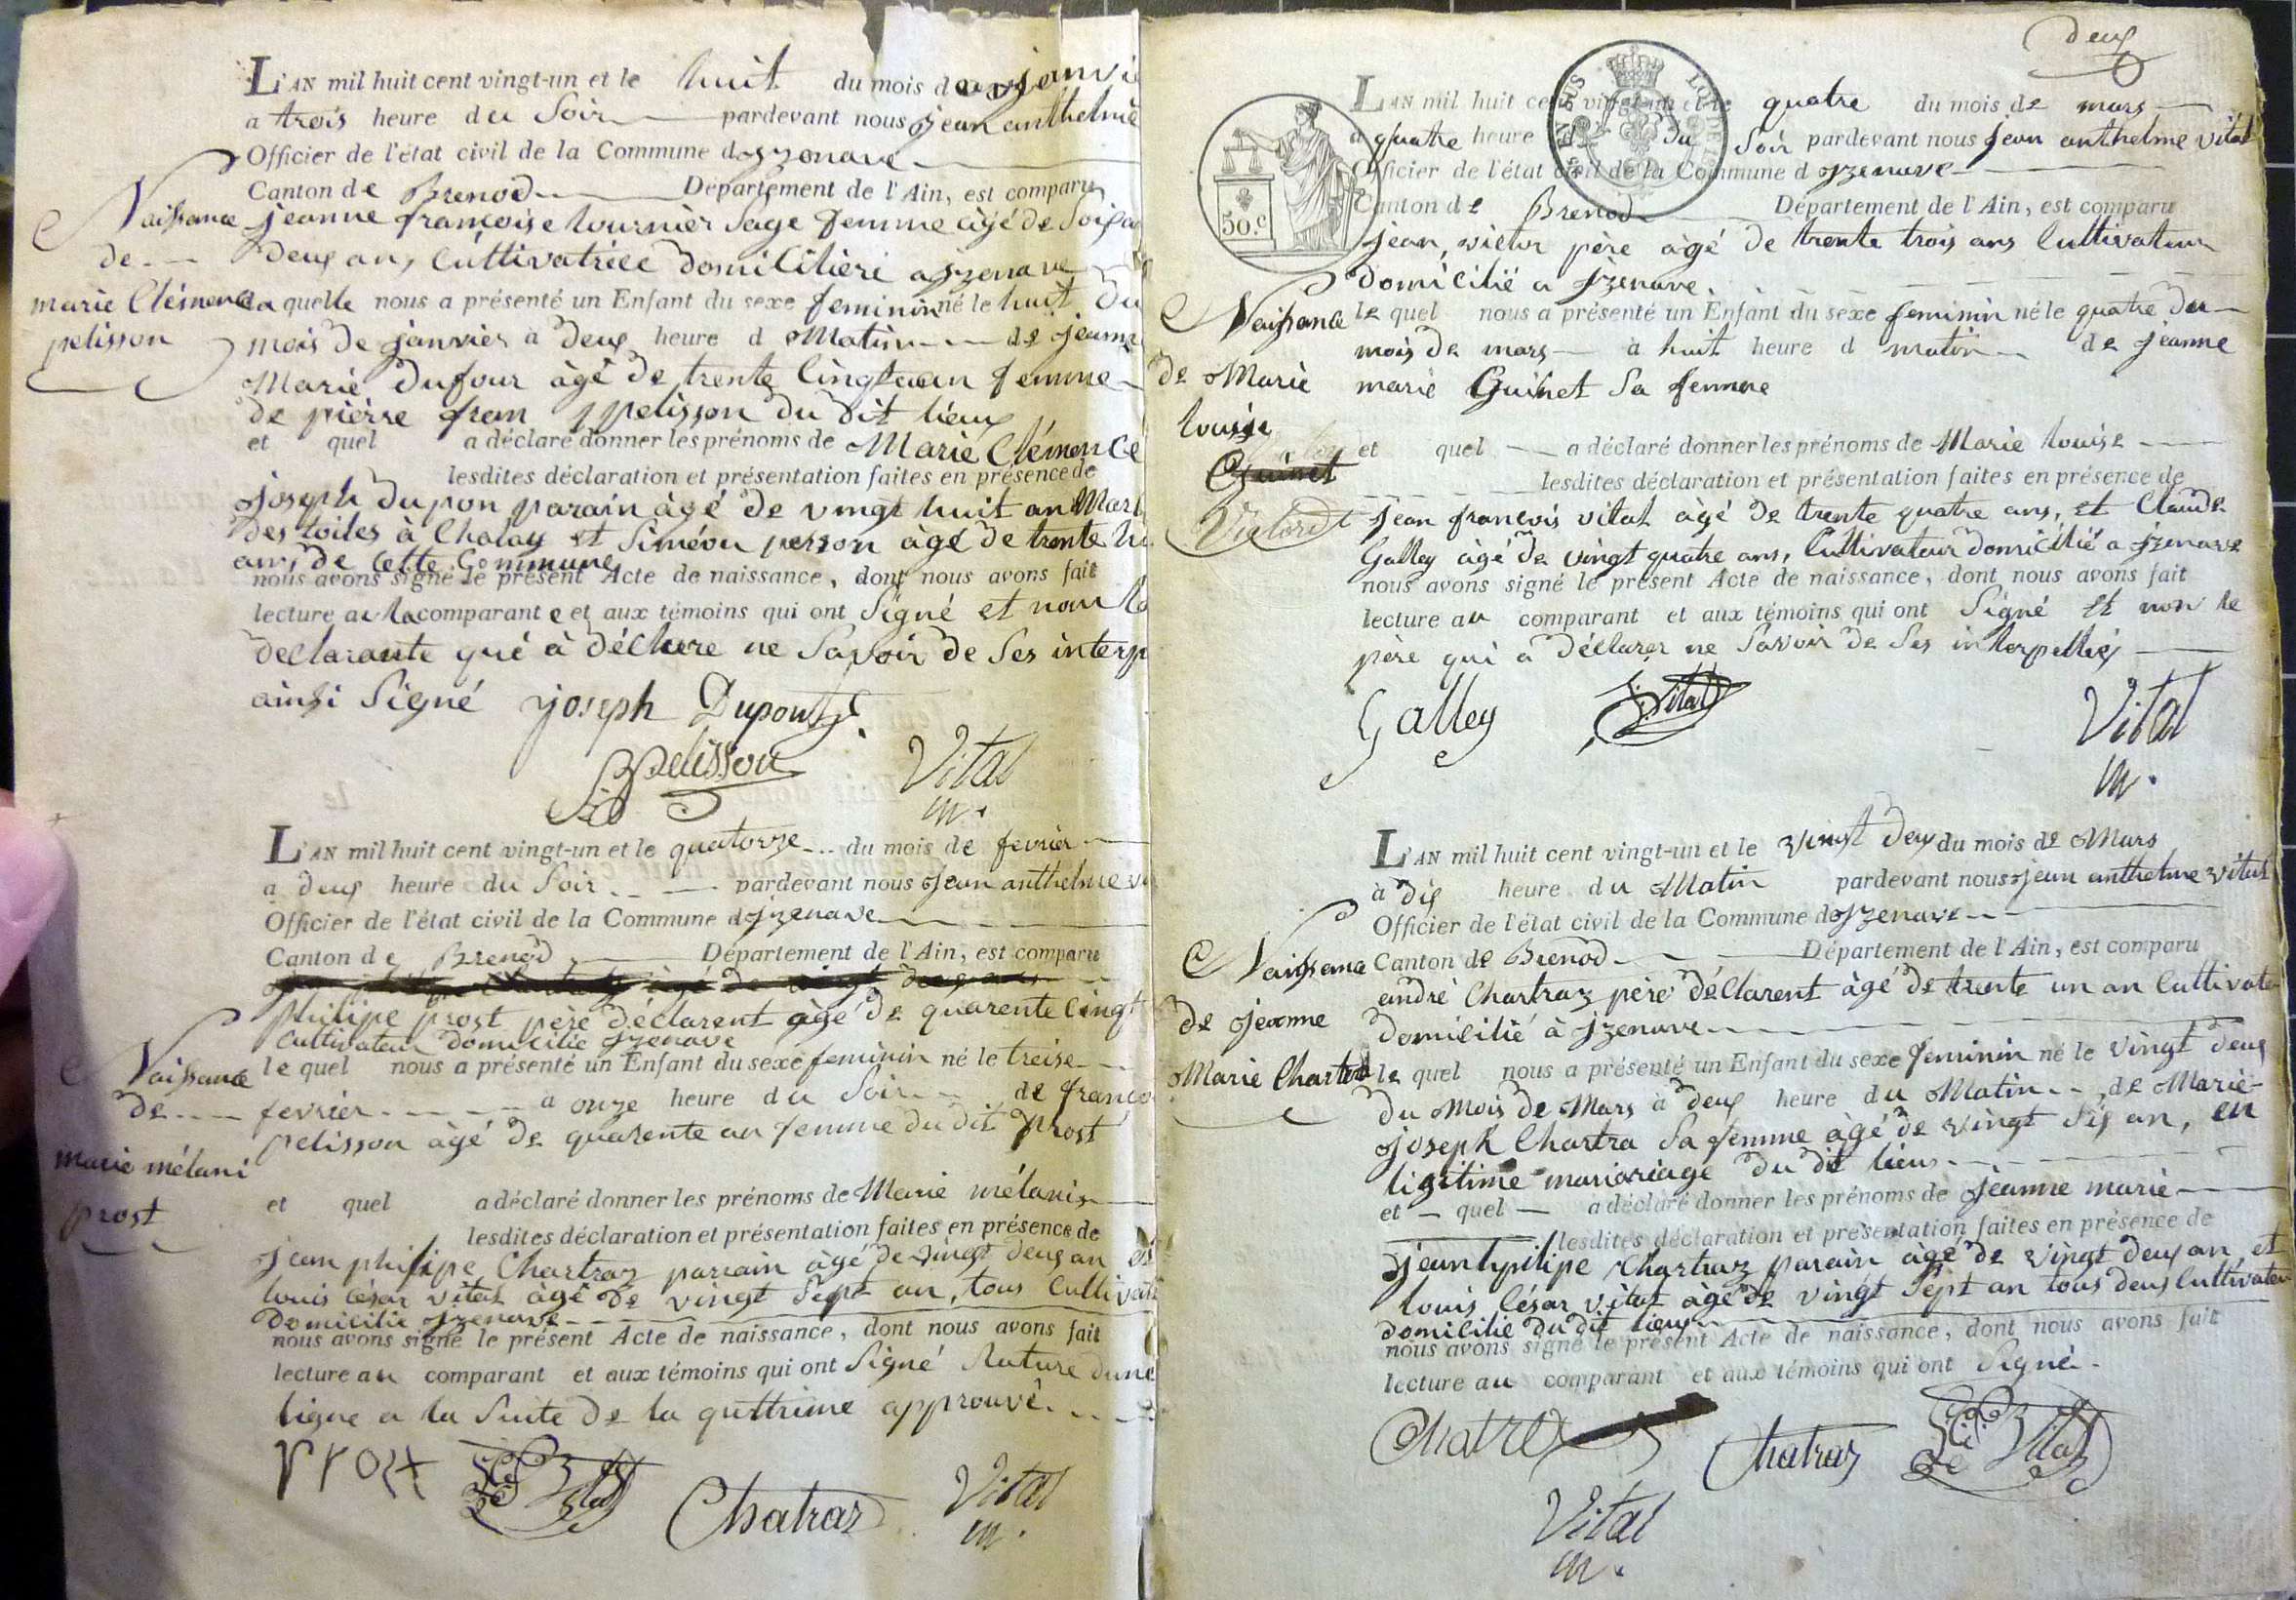 L'AN mil huit cent vingt-un et le huit du mois de janvie
a trois heure du Soir pardevant nous jean anthelme
Officier de l'état civil de la Commune d jzenave
Canton de Brenod Département de l'Ain, est comparu
Naissance
de
marie Clémence
pelisson
jeanne françoise tournier Sage femme âgé de Soixa
deux an, Cultivatrice domicilière a jzenave
la quelle nous a présenté un Enfant du sexe feminin né le huit du
mois de janvier à deux heure d Matin de jeanne
Marie dufour âgé de trente femme
de pièrre fran pelisson du dit lieux
et quel a déclaré donner les prénoms de Marie Clémence
lesdites déclaration et présentation faites en présence de
joseph dupon parain âgé de vingt huit an Mar
des toiles à Chalay et Siméon âgé de trente
an, de Cette Commune
nous avons signé le présent Acte de naissance, dont nous avons fait
lecture a la comparante et aux témoins qui ont Signé et non la
declarante qui à déclere ne Savoir de Ses interp
ainsi Signé joseph Dupont
Pelisson Vital
m.
L'AN mil huit cent vingt-un et le quatorze du mois de fevrier
a deux heure du Soir pardevant nous jean anthelme vi
Officier de l'état civil de la Commune d jzenave
Canton de Brenod Département de l'Ain, est comparu
philipe prost père déclarent âgé de quarente Cinqt
Cultivateur domicilie jzenave
Naissance
de
marie mélani
prost
le quel nous a présenté un Enfant du sexe feminin né le treise
fevrier a onze heure du Soir de franço
pelisson âgé de quarente an femme du dit Prost
et quel a déclaré donner les prénoms de Marie mélanie
lesdites déclaration et présentation faites en présence de
jean philipe Chartraz parain âgé de vingt deux an et
louis César vital âgé de vingt Sept an, tous Cultivat
Domicilie jzenave
nous avons signé le présent Acte de naissance, dont nous avons fait
lecture au comparant et aux témoins qui ont Signé Rature dune
ligne a la Suite de la quttrime approuvé
Prost Vital Chatraz Vital
m.
deux
50.c
L'AN mil huit cent vingt-un et le quatre du mois de mars
a quatre heure du Soir pardevant nous jean anthelme vital
Officier de l'état civil de la Commune d jzenave
Canton de Brenod Département de l'Ain, est comparu
jean, victor père âgé de trente trois ans Cultivateur
domicilié a jzenave.
Naissance
de Marie
louise
Guinet
Victord
le quel nous a présenté un Enfant du sexe feminin né le quatre du
mois de mars à huit heure d matin de jeanne
marie Guinet Sa femme
et quel a déclaré donner les prénoms de Marie louise
lesdites déclaration et présentation faites en présence de
jean francois vital âgé de trente quatre ans, et Claude
Galley âgé de vingt quatre ans, Cultivateur domicilié a jzenave
nous avons signé le présent Acte de naissance, dont nous avons fait
lecture au comparant et aux témoins qui ont Signé et non le
père qui a déclarer ne Savoir de Ses interpelliés
Galley Vital Vital
m.
L'AN mil huit cent vingt-un et le vingt deux du mois de Mars
à dix heure du Matin pardevant nous jean anthelme vital
Officier de l'état civil de la Commune d jzenave
Canton de Brenod Département de l'Ain, est comparu
Naissance
de jeanne
Marie Chartra
andré Chartraz père déclarent âgé de trente un an Cultivate
domicilié à jzenave
le quel nous a présenté un Enfant du sexe feminin né le vingt deux
du Mois de Mars à deux heure du Matin de Marie
joseph Chartra Sa femme âgé de vingt Six an, en
ligitime mariariage du dit lieux
et quel a déclaré donner les prénoms de jeanne marie
lesdites déclaration et présentation faites en présence de
jean hpilipe Chartraz parain âgé de vingt deux an, et
louis César vital âgé de vingt Sept an tous deux Cultivateu
domicilié du dit lieux
nous avons signé le présent Acte de naissance, dont nous avons fait
lecture au comparant et aux témoins qui ont Signé
Chatraz Vital
Vital
m.